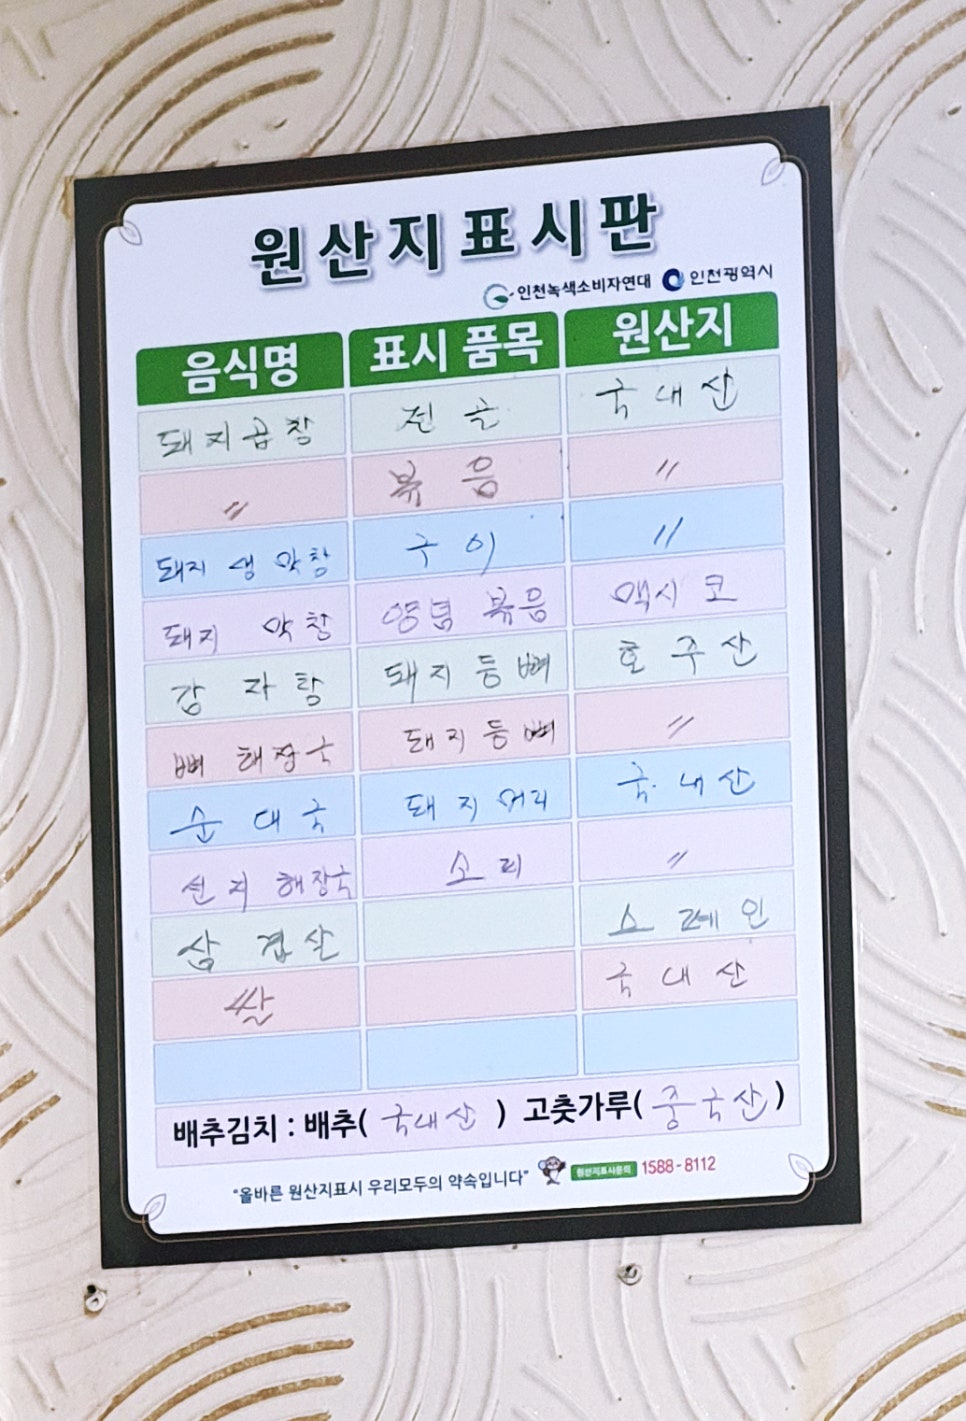 원산지표시판
인천녹색소비자연대 인천광역시
음식명 표시 품목 원산지
돼지곱창 전골 국내산
〃 볶음 〃
돼지 생 막창 구이 〃
돼지 막창 양념 볶음 멕시코
감자탕 돼지등뼈 호주산
뼈 해장국 돼지등뼈 〃
순대국 돼지머리 국내산
선지 해장국 소피 〃
삼겹살 스페인
쌀 국내산
배추김치 : 배추( 국내산 ) 고춧가루( 중국산 )
"올바른 원산지표시 우리모두의 약속입니다" 원산지표시문의 1588-8112